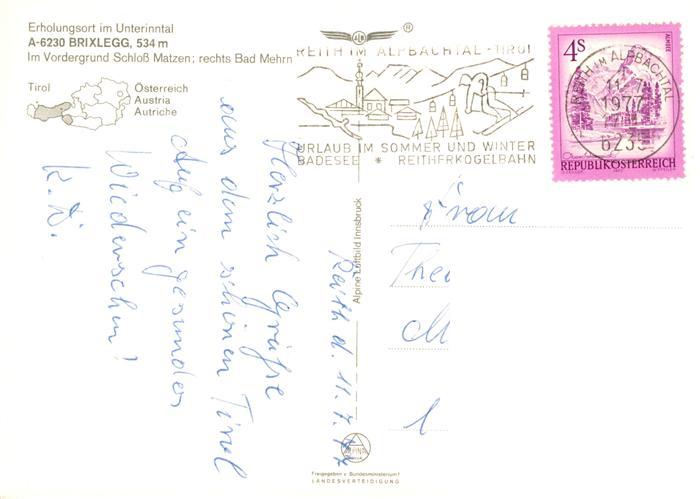 Erholungsort im Unterinntal
A-6230 BRIXLEGG, 534 m
Im Vordergrund Schloß Matzen; rechts Bad Mehrn
Tirol
Österreich
Austria
Autriche
ALM
®
REITH IM ALPBACHTAL - TIROL
URLAUB IM SOMMER UND WINTER
BADESEE * REITHERKOGELBAHN
4S
ALMSEE
REITH IM ALPBACHTAL
11.-7.
1977
6235
REPUBLIK ÖSTERREICH
Reith d. 11.7.77
Herzlich Grüße
aus dem schönen Tirol
Auf ein gesundes
Wiedersehen!
K. W.
Frau
Alpine Luftbild Innsbruck
ALPINE
Freigegeben v. Bundesministerium f.
LANDESVERTEIDIGUNG